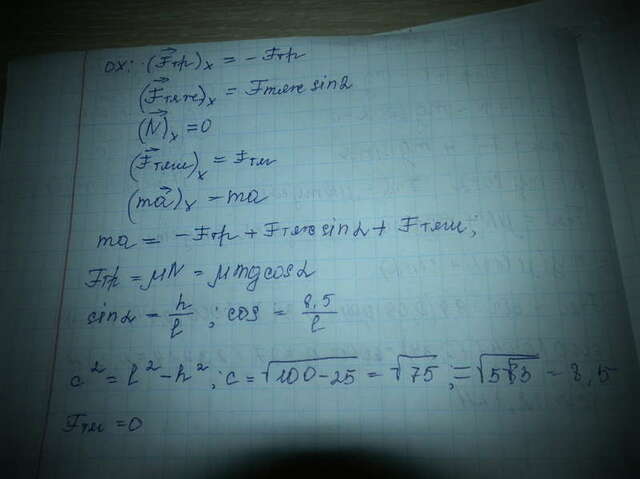 ox: (F⃗тр)ₓ = - Fтр
(F⃗тяж)ₓ = Fтяж sin2
(N⃗)ₓ = 0
(F⃗тяги)ₓ = Fтяг
(ma⃗)ₓ - ma
ma = - Fтр + Fтяж sin2 + Fтяги;
Fтр = μN = μmgcos2
sin2 = h/l ; cos = 8.5/l
c² = l² - h²; c = √100-25 = √75; = √5·5·3 - 8,5
Fтяг = 0